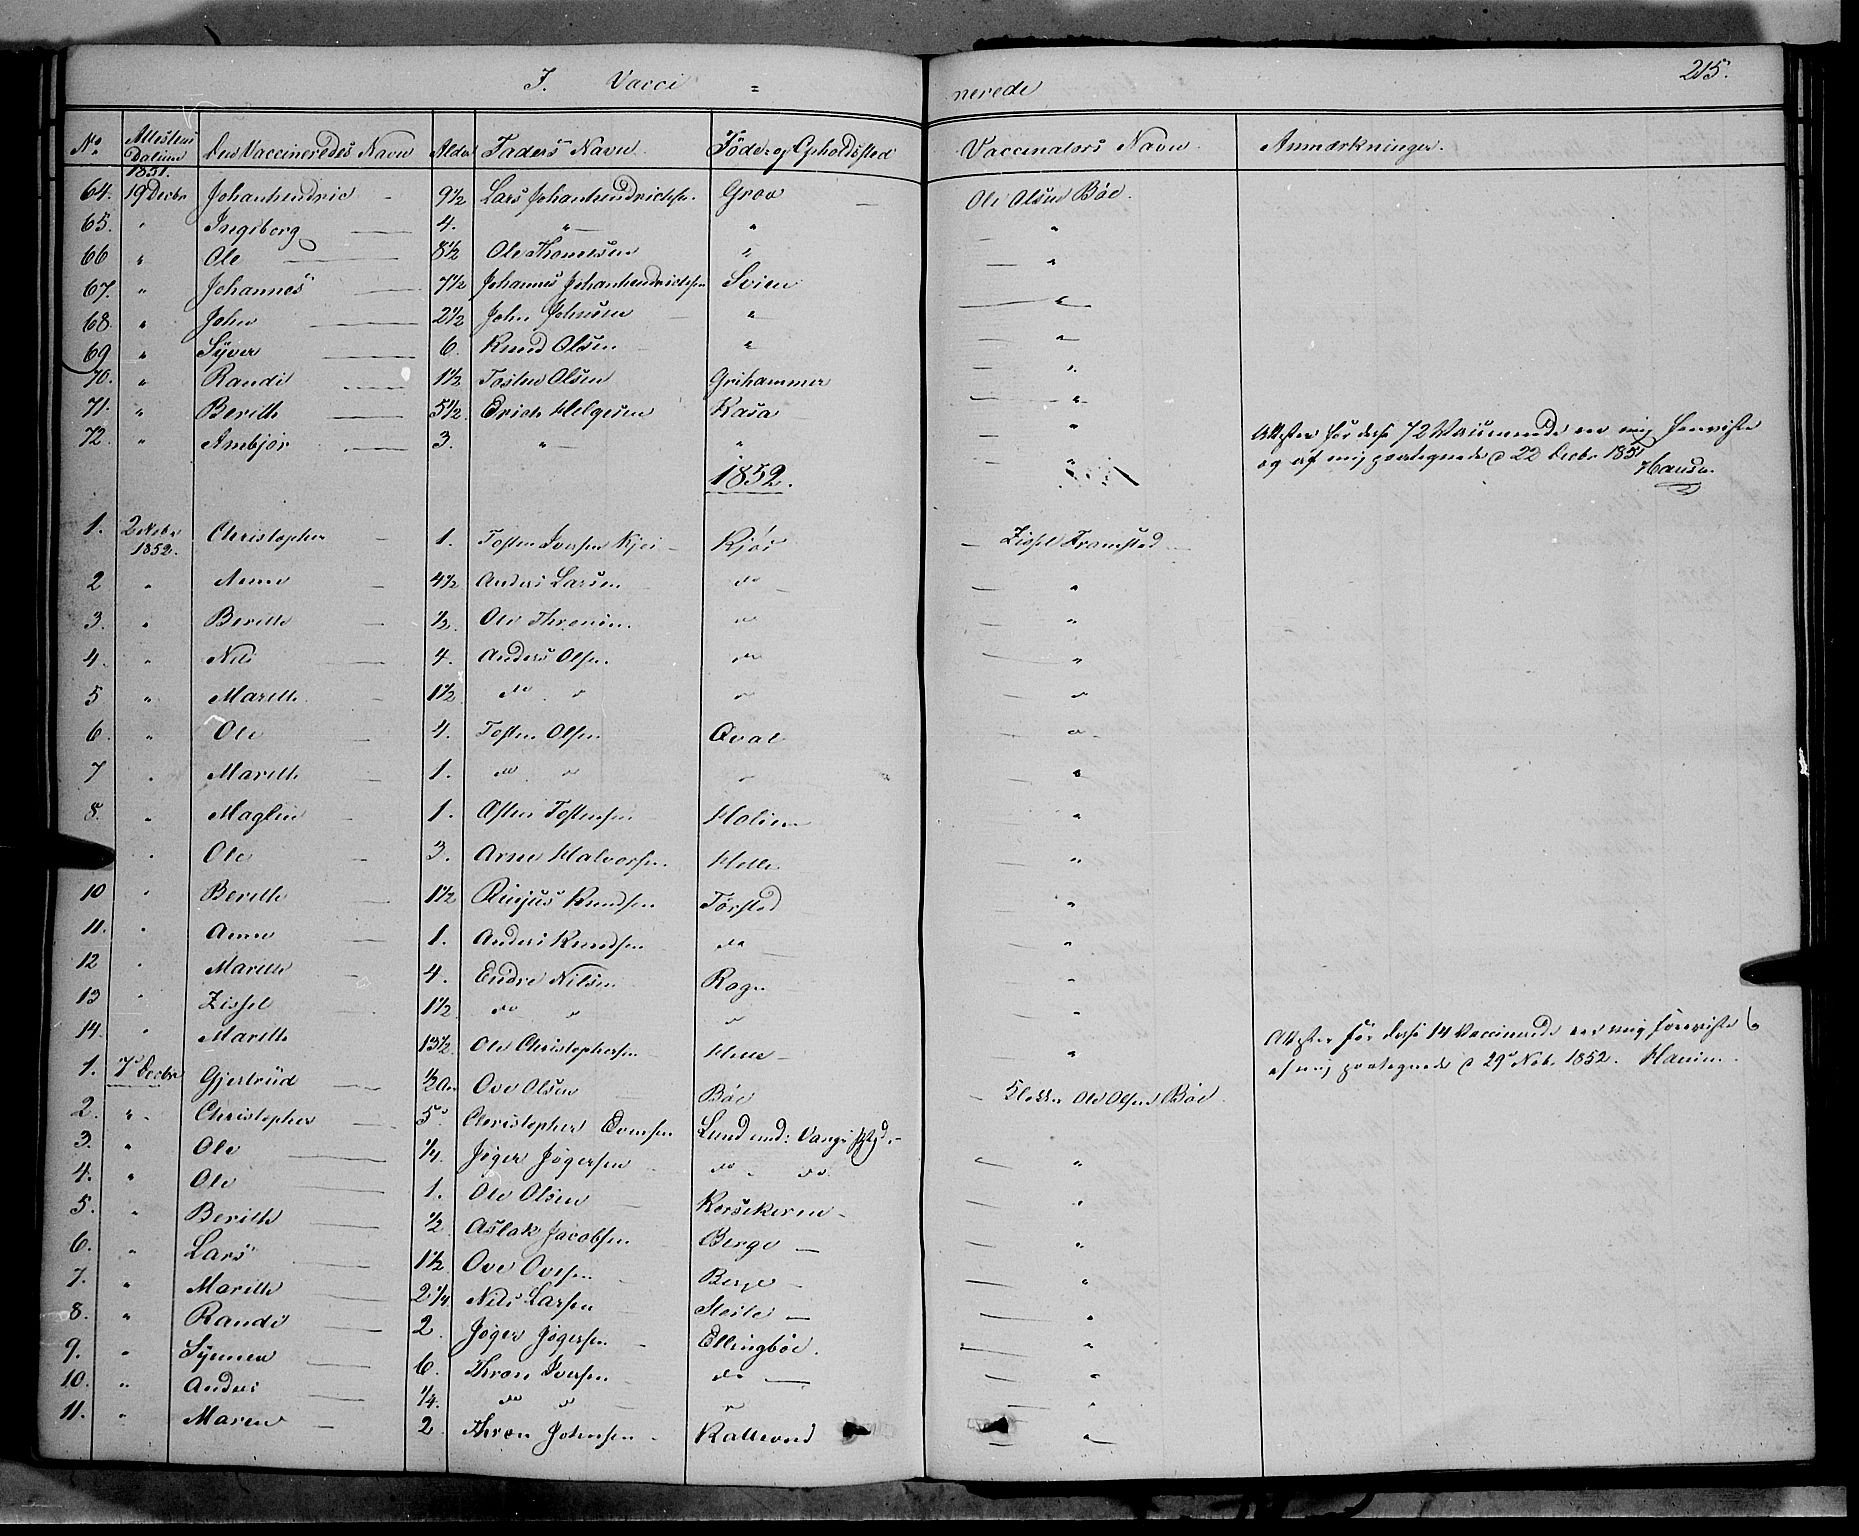 215.
J. Vacci = nerede
No. Attestens Datum Den Vaccineredes Navn Alder Faders Navn. Føde- og Opholdssted Vaccinateurs Navn. Anmærkninger.
1851.
64. 19 Decbr Johanhendric - 9½ Lars Johanhendrichsen. Grov Ole Olsen Böe.
65. " Ingiborg 4. " " "
66 " Ole 8½ Ole Thomesen " "
67. " Johannes 7½ Johannes Johanhendrichsen Svien "
68. " John 2½ John Johnsen " "
69 " Syver 6. Knud Olsen " "
70. " Randi 1½ Tosten Olsen Grihammer "
71. " Berith 5½ Erich Helgesen Kasa "
72. " Ambjør 3. " " "
Attester for disse 72 Vaccinerede ere mig foreviste
og af mig paategnede d 22 Decbr 1851 Hansen
1852.
1. 2 Nobr 1852. Christopher 1. Tosten Iversen Kjøi Kjøi Zissel Framstad
2 " Anne 4½ Anders Larsen do "
3. " Berith ½ Ole Thronsen. do "
4. " Nils 4. Anders Olsen. do "
5 " Marith 1½ do " " "
6. " Ole 4. Tosten Olsen Qvale "
7 " Marith 1. do " " "
8. " Maglin 1. Asten Tostensen Holien "
" Ole 3. Arne Halvorsen. Helle "
10 " Berith 1½ Knudsen Torstad "
11. " Anne 1. Anders Knudsen do "
12 " Marith 4. Endre Nilsen Rogn "
13 " Zissel 1½ do " " "
14. " Marith 13½ Ole Christophersen Helle "
Attester for disse 14 Vaccinerede ere mig foreviste og
af mig paategnede d 29 Nobr. 1852. Hansen.
1. 7 Decbr Gjertrud ½ Aar Ove Olsen Böe Klokker Ole Olsen Böe.
2. " Christopher 5 Christopher Evensen Lund und: Vangs Prgd.
3. " Ole ¼ Jöger Jögersen do do "
4. " Ole 1. Ole Olsen Kersekeren "
5. " Berith ½ Aslak Jacobsen Berge "
6. " Lars 1½ Ove Ovesen Berge "
7. " Marith 2¼ Nils Larsen Steile "
8. " Randi 2. Jöger Jögersen Ellingböe. "
9. " Synnev 6. Thron Iversen do "
10. " Anders ¼. do " " "
11. " Maren 2 Thron Johnsen Kattevand "